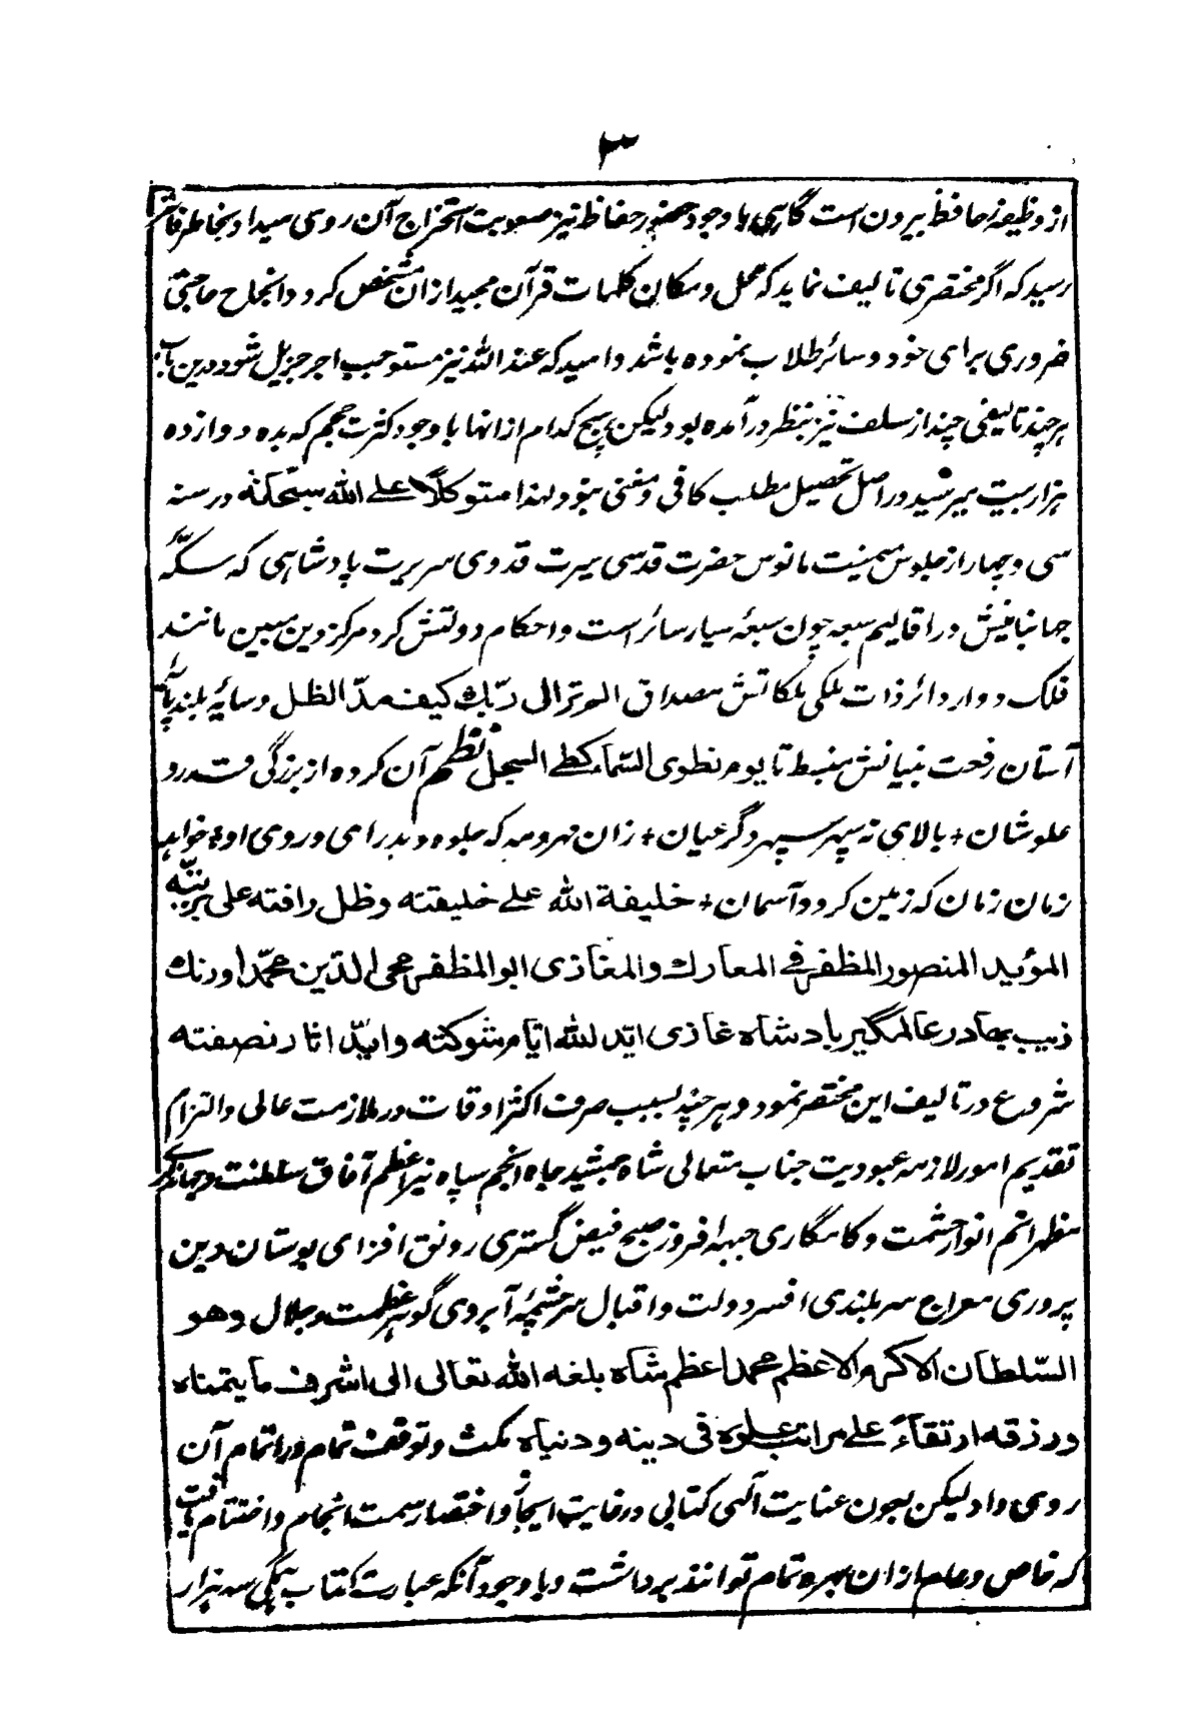 ۳
از وظیفهٔ حافظ بیرون است گاهی با وجود حضور حفاظ نیز صعوبت استخراج آن روی میداد بخاطر فاتر
رسید که اگر مختصری تالیف نماید که محل و مکان کلمات قرآن مجید ازان مشخص کردد انجاح حاجتی
ضروری برای خود و سائر طلاب نموده باشد و امید که عند الله نیز مستوجب اجر جزیل شود درین باب
هر چند تالیفی چند از سلف نیز بنظر در آمده بود لیکن هیچ کدام ازانها با وجود کثرت حجم که بده دوازده
هزار بیت میرسید در اصل تحصیل مطلب کافی و مغنی نبود لهذا متوکلًا علی الله سبحانه در سنه
سی و چهار از جلوس میمنت مانوس حضرت قدسی سیرت قدوی سریرت پادشاهی که سکّه
جهانبانیش در اقالیم سبعه چون سبعهٔ سیار سائر است و احکام دولتش کرد مرکز دین مبین مانند
فلک دوار دائر ذات ملکی ملکاتش مصداق الم تر الی ربّك کیف مدّ الظل و سایهٔ بلند پایهٔ
آستان رفعت بنیانش منبسط تا یوم نطوی السّماء کطی السجل نظم آن کرده از بزرگی قدر و
علو شان + بالای نه سپهر سپهر دگر عیان + زان مهر و مه که جلوه دهد رای و روی او + خواهد
زمان زمان که زمین کردد آسمان + خلیفة الله علی خلیقته و ظل رافته علی بریّته
المؤید المنصور المظفر فی المعارك والمغازی ابو المظفر محی الدّین محمّد اورنك
زیب بهادر عالمگیر بادشاه غازی ایّد الله ایام شوکته و ابّد اثار نصفته
شروع در تالیف این مختصر نمود و هر چند بسبب صرف اکثر اوقات در ملازمت عالی و التزام
تقدیم امور لازمه عبودیت جناب متعالی شاه جمشید جاه انجم سپاه نیر اعظم آفاق سلطنت و جهانداری
مظهر اتم انوار حشمت و کامگاری جبهه افروز صبح فیض گستری رونق افزای بوستان دین
پروری معراج سر بلندی افسر دولت و اقبال سرچشمهٔ آبروی گوهر عظمت و جلال وهو
السّلطان الاکرم والاعظم محمد اعظم شاه بلغه الله تعالی الی اشرف ما یتمناه
ورزقه ارتقاءً علی مراتب علوه فی دینه و دنیاه مکث و توقف تمام در اتمام آن
روی داد لیکن بعون عنایت آلهی کتابی در غایت ایجاز و اختصار سمت انجام و اختتام یافت
که خاص و عام ازان بهره تمام توانند برداشت و با وجود آنکه عبارت کتاب بیگی سه هزار